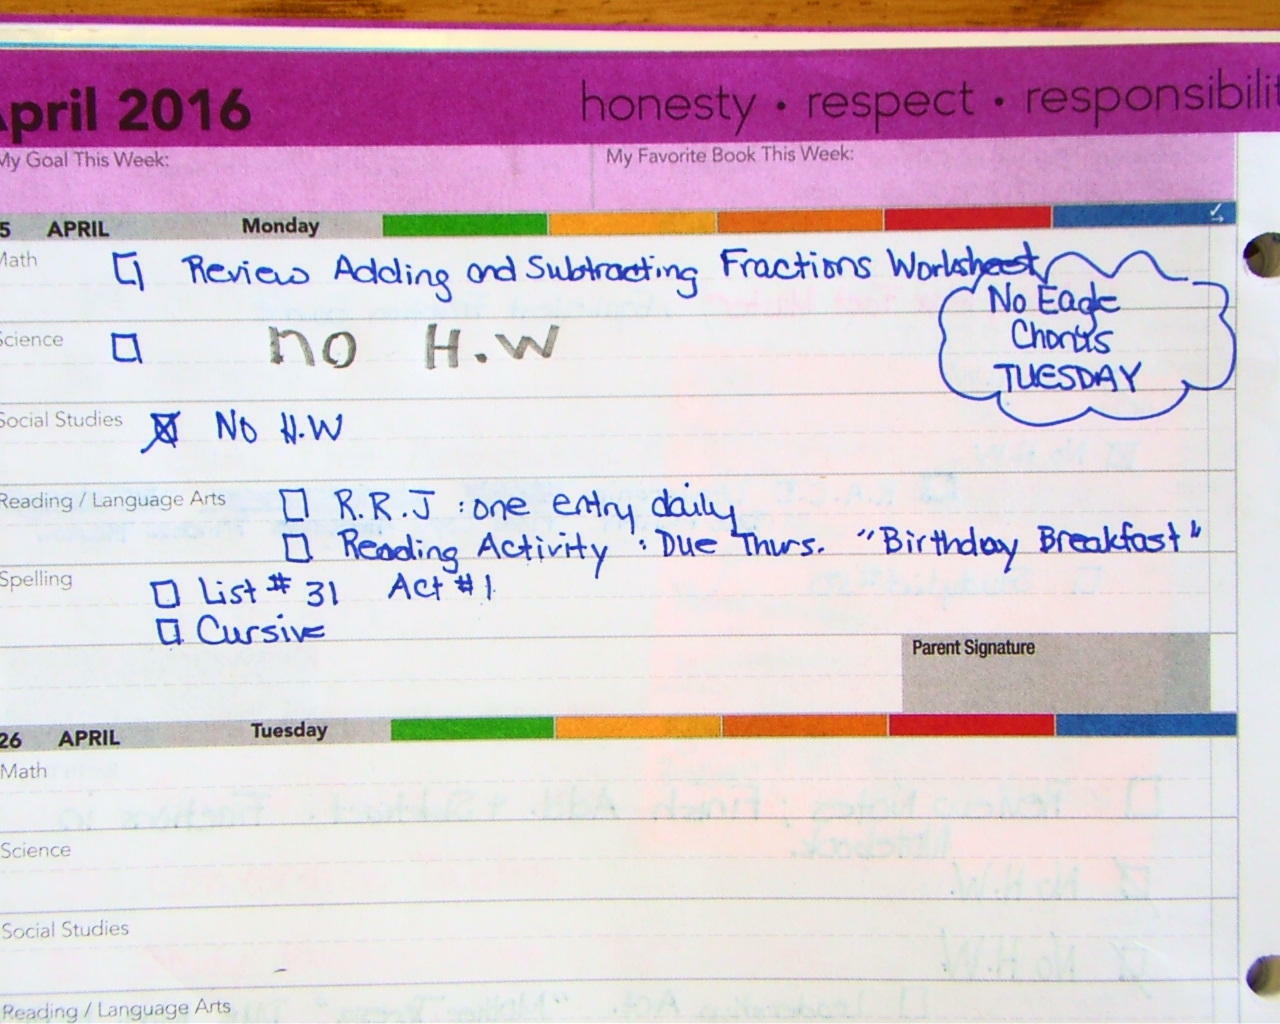 April 2016 honesty • respect • responsibilit
My Goal This Week: My Favorite Book This Week:
5 APRIL Monday
Math Review Adding and Subtracting Fractions Worksheet
No Eagle
Chorus
TUESDAY
Science no H.W
Social Studies No H.W
Reading / Language Arts R.R.J : one entry daily
Reading Activity : Due Thurs. "Birthday Breakfast"
Spelling List # 31 Act # 1
Cursive
Parent Signature
26 APRIL Tuesday
Math
Science
Social Studies
Reading / Language Arts